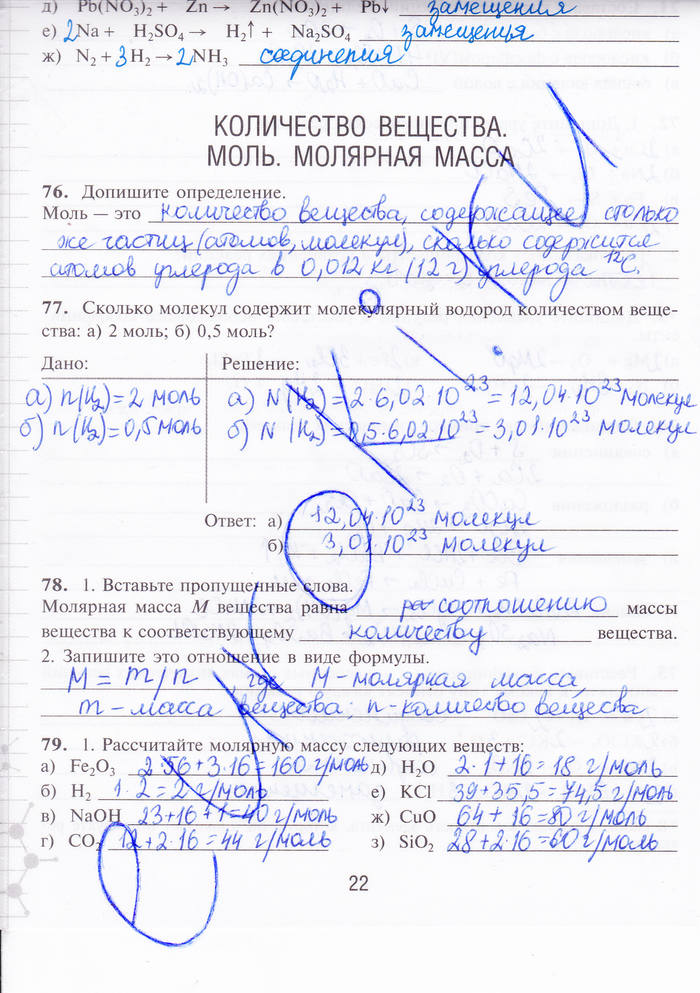 д) Pb(NO₃)₂ + Zn → Zn(NO₃)₂ + Pb↓ замещения
е) 2Na + H₂SO₄ → H₂↑ + Na₂SO₄ замещения
ж) N₂ + 3H₂ → 2NH₃ соединения
КОЛИЧЕСТВО ВЕЩЕСТВА.
МОЛЬ. МОЛЯРНАЯ МАССА
76. Допишите определение.
Моль — это количество вещества, содержащее столько
же частиц (атомов, молекул), сколько содержится
атомов углерода в 0,012 кг (12 г) углерода ¹²C.
77. Сколько молекул содержит молекулярный водород количеством веще-
ства: а) 2 моль; б) 0,5 моль?
Дано: Решение:
а) n(H₂) = 2 моль а) N(H₂) = 2·6,02·10²³ = 12,04·10²³ молекул
б) n(H₂) = 0,5 моль б) N (H₂) = 0,5·6,02·10²³ = 3,01·10²³ молекул
Ответ: а) 12,04·10²³ молекул
б) 3,01·10²³ молекул
78. 1. Вставьте пропущенные слова.
Молярная масса M вещества равна соотношению массы
вещества к соответствующему количеству вещества.
2. Запишите это отношение в виде формулы.
M = m/n, где M – молярная масса,
m – масса вещества, n – количество вещества
79. 1. Рассчитайте молярную массу следующих веществ:
а) Fe₂O₃ 2·56+3·16=160 г/моль д) H₂O 2·1+16=18 г/моль
б) H₂ 1·2=2 г/моль е) KCl 39+35,5=74,5 г/моль
в) NaOH 23+16+1=40 г/моль ж) CuO 64+16=80 г/моль
г) CO₂ 12+2·16=44 г/моль з) SiO₂ 28+2·16=60 г/моль
22